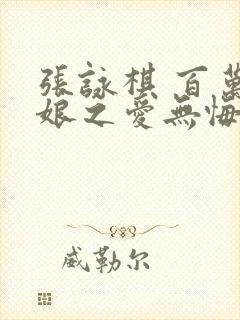 張詠棋 百萬
娘之愛無悔
威勒尔